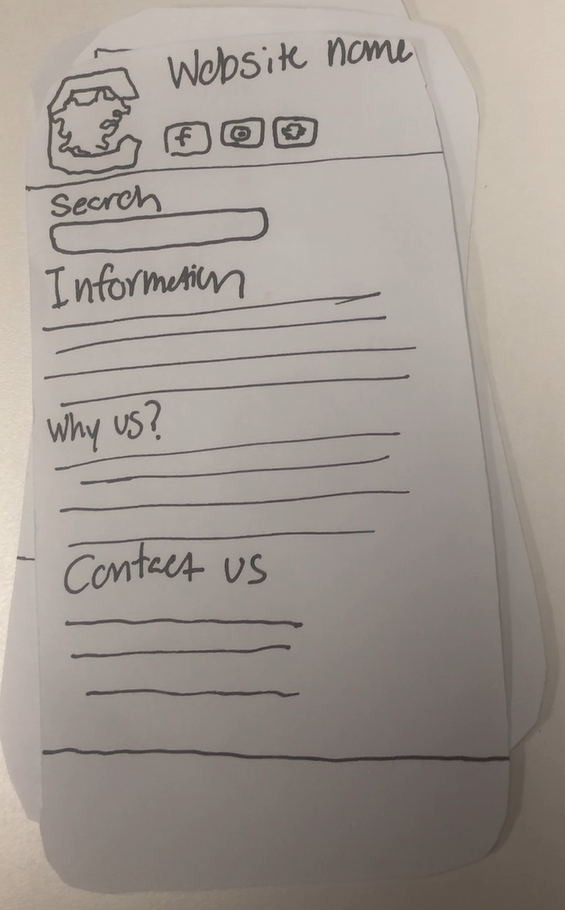 Website name
f
Search
Information
Why us?
Contact us